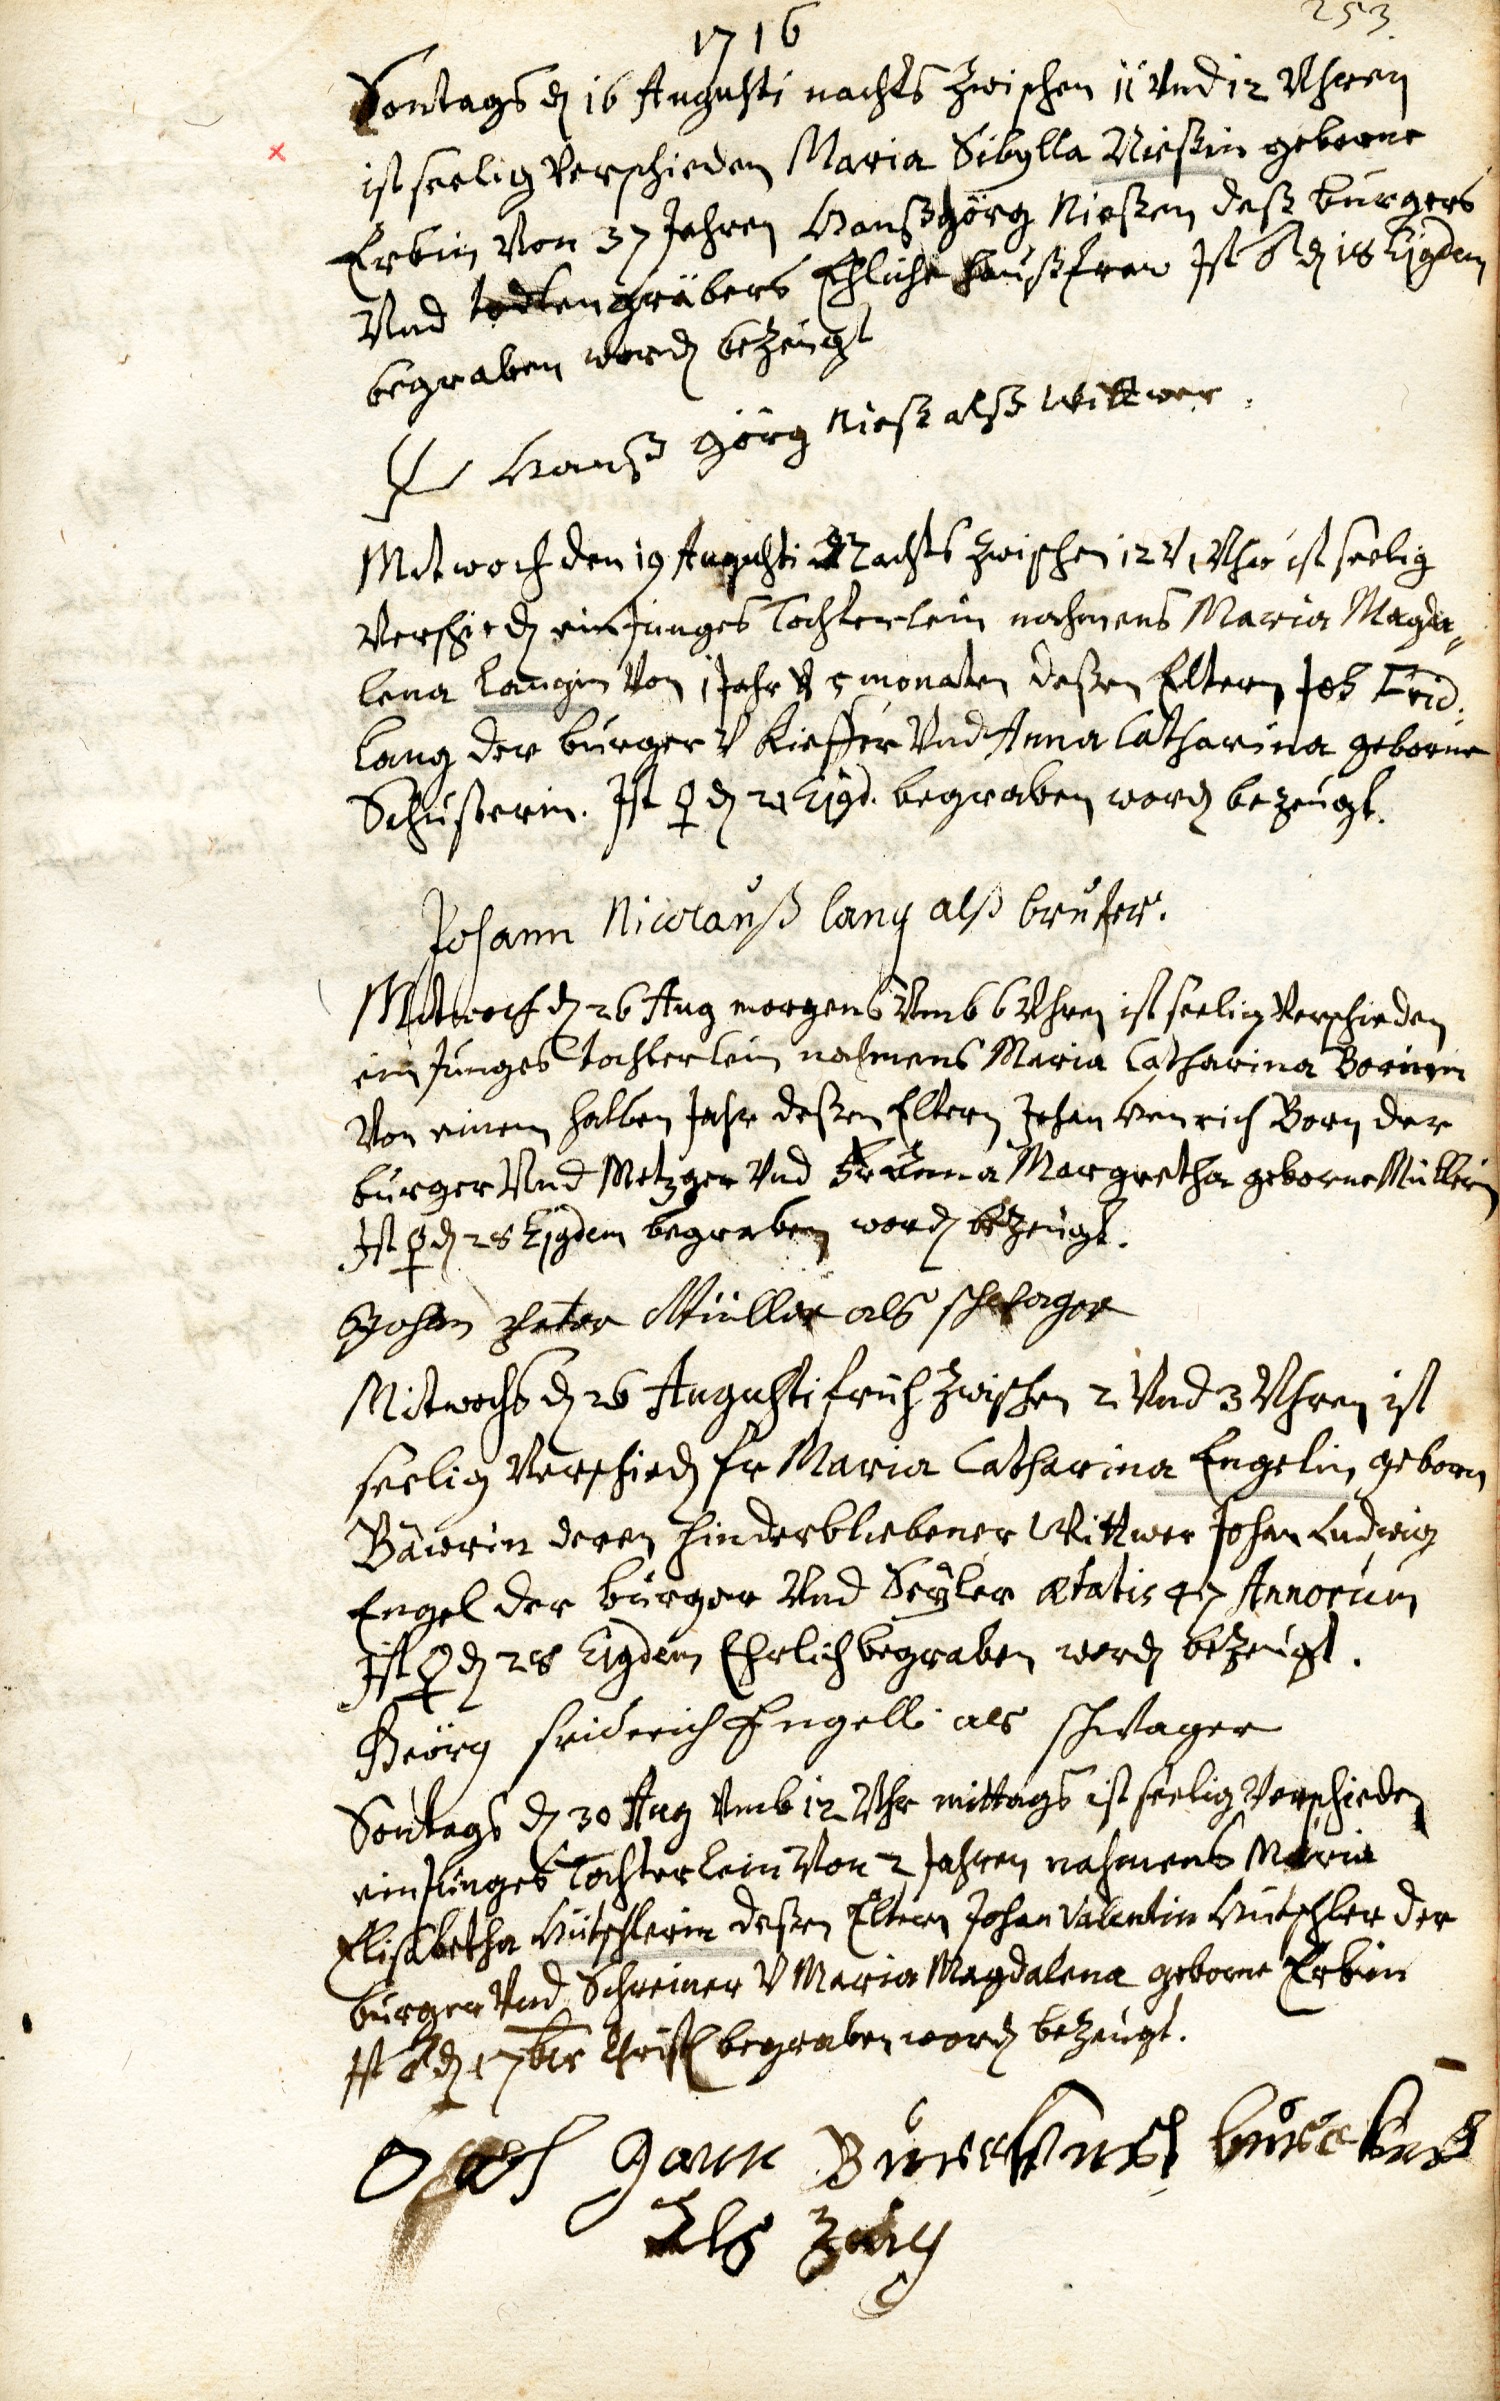 253.
1716
Sontags dñ 16 Augusti nachts zwischen 11 Und 12 Uhren
ist seelig verschieden Maria Sibylla Nießin geborne
Erbin Von 37 Jahren Hanß Görg Nießen deß burgers
Und todtengräbers Ehliche haußfraw Ist ♂ dñ 18 Ejgdem
begraben word bezeügt
Hanß Görg Nieß alß Wittwer.
Mitwoch den 19 Augusti Nachts zwischen 12 V 1 Uhr ist seelig
Verschied ein Junges Tochterlein nahmens Maria Magda„
lena Langin Von 1 Jahr V 5 monaten deßen Eltern Joh Frid.
Lang der bürger V Kieffer Und Anna Catharina geborne
Schusterin. Ist ♀ dñ 21 Ejgd. begraben word bezeügt.
Johann Nicolauß lang alß bruder.
Mitwoch dñ 26 Aug morgens Umb 6 Uhren ist seelig Verschieden
ein Junges tochterlein nahmens Maria Catharina Bornin
Von einem halben Jahr deßen Eltern Johan Henrich Born der
bürger Und Metzger Und Anna Margretha geborne Müllerin
Ist ♀ dñ 28 Ejgdem begraben word bezeügt.
Johan peter Müller als schwager
Mitwochs dñ 26 Augusti früh zwischen 2 Und 3 Uhren ist
seelig Verschied Fr Maria Catharina Engelin geborn
Bäwrin deren hinderbliebener Wittwer Johan Ludwig
Engel der bürger Und Seyler ætatis 47 Annorum
Ist ♀ dñ 28 Ejgdem Ehrlich begraben word bezeügt.
Geörg friderich Engell als schwager
Sontags dñ 30 Aug Umb 12 Uhr mittags ist seelig Verschieden
ein Junges Tochterlein Von 2 Jahren nahmens Maria
Elisabetha Hütschlerin deßen Eltern Johan Valentin Hütschler der
bürger Und Schreiner V Maria Magdalena geborne Erbin
Ist ♂ dñ 1 7bris Christl begraben word bezeügt.
Als Zeüg